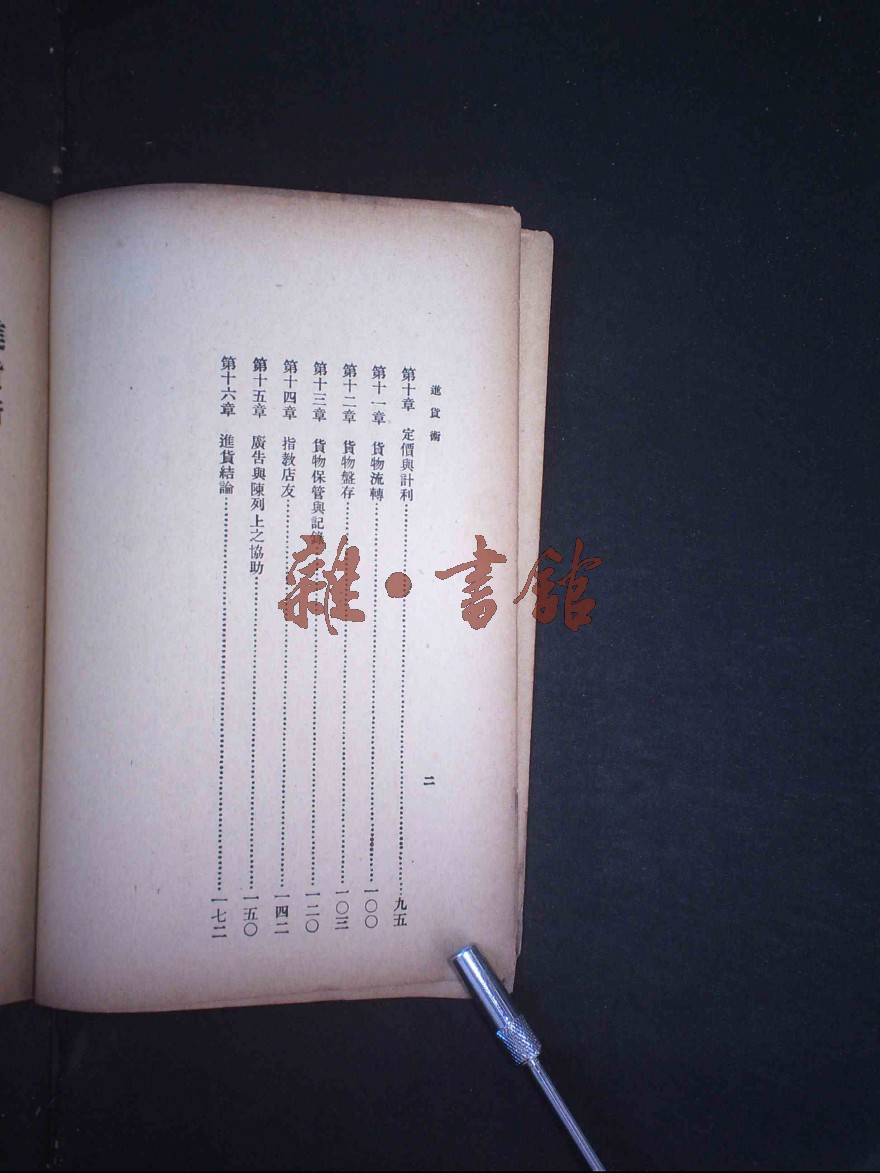 進貨術
二
第十章 定價與計利……九五
第十一章 貨物流轉……一〇〇
第十二章 貨物盤存……一〇三
第十三章 貨物保管與記錄……一二〇
第十四章 指教店友……一四二
第十五章 廣告與陳列上之協助……一五〇
第十六章 進貨結論……一七二
雜·書館